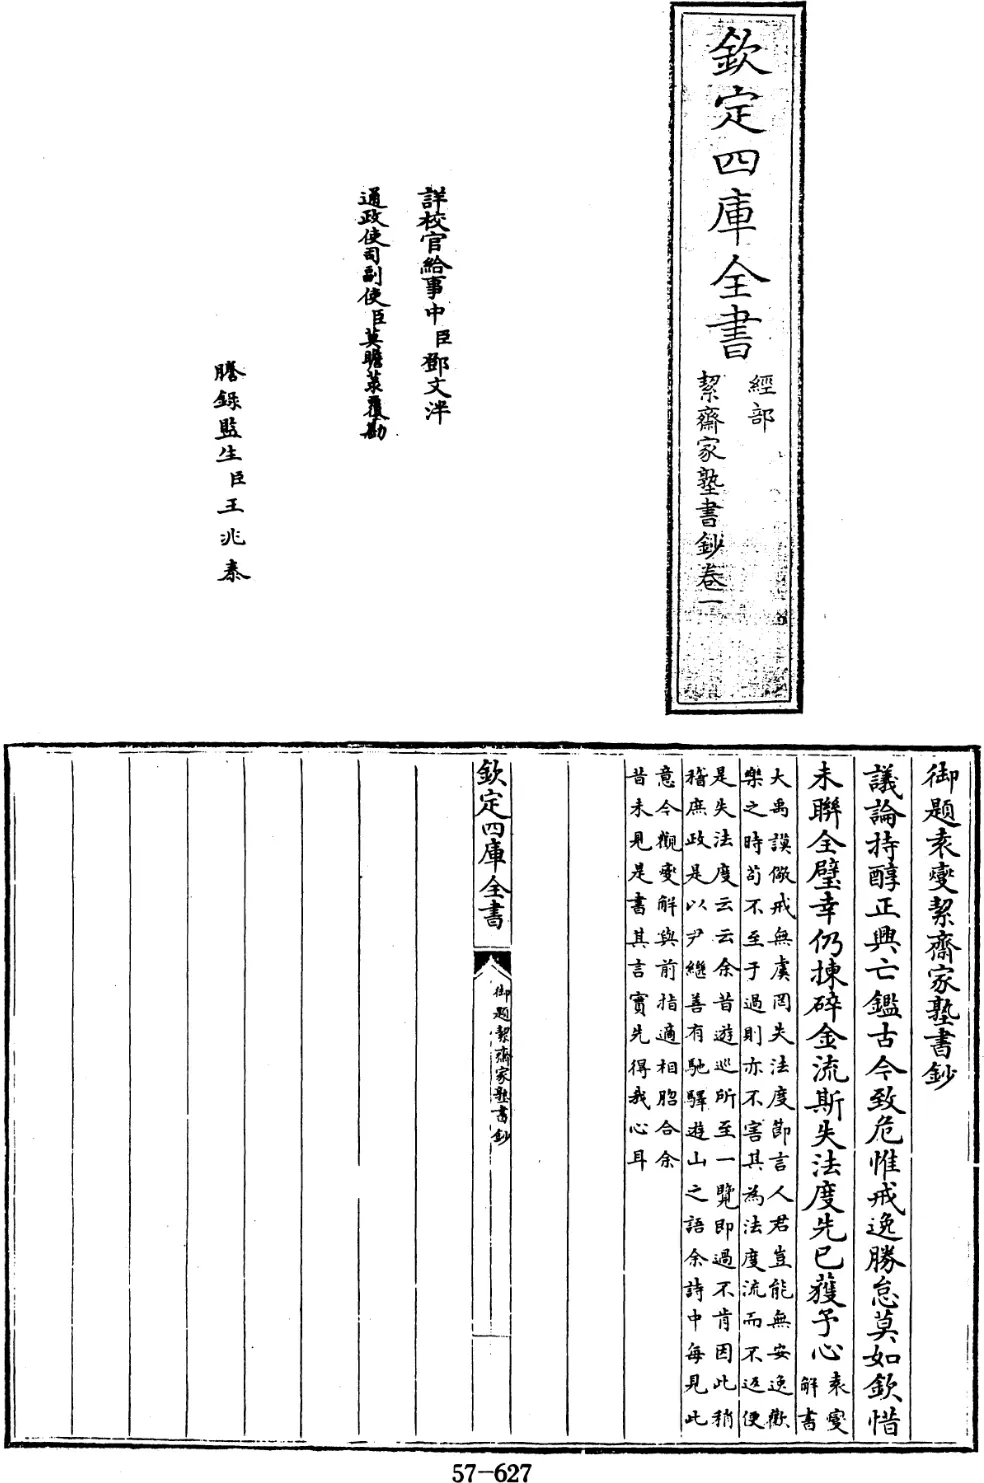 欽定四庫全書
經部
絜齋家塾書鈔卷一
詳校官給事中臣鄭文泮
通政使司副使臣莫瞻菉覆勘
謄錄監生臣王兆泰
御題袁燮絜齋家塾書鈔
議論持醇正興亡鑑古今致危惟戒逸勝怠莫如欽惜
未聯全璧幸仍揀碎金流斯失法度先已獲予心
袁燮
解書
大禹謨儆戒無虞罔失法度節言人君豈能無安逸歡
樂之時苟不至于過則亦不害其為法度流而不返便
是失法度云云余昔遊巡所至一覽即過不肯因此稍
稽庶政是以尹繼善有馳驛遊山之語余詩中每見此
意今觀燮解與前指適相脗合余
昔未見是書其言實先得我心耳
欽定四庫全書
御題絜齋家塾書鈔
57-627